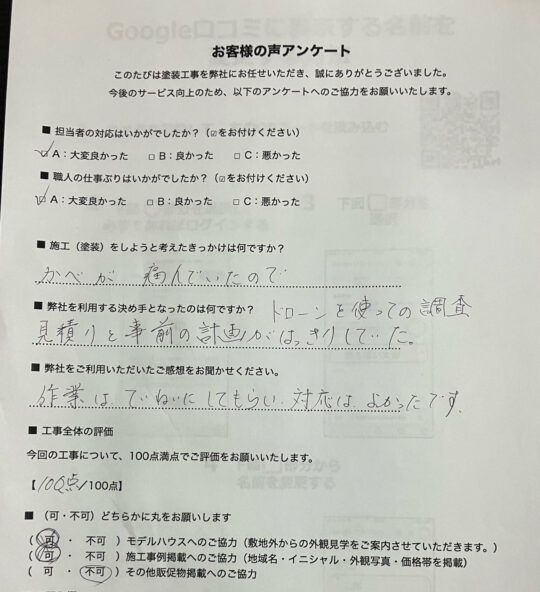 Google口コミに表示する名前を
お客様の声アンケート
このたびは塗装工事を弊社にお任せいただき、誠にありがとうございました。
今後のサービス向上のため、以下のアンケートへのご協力をお願いいたします。
■ 担当者の対応はいかがでしたか？（☑をお付けください）
☑ A：大変良かった □ B：良かった □ C：悪かった
■ 職人の仕事ぶりはいかがでしたか？（☑をお付けください）
☑ A：大変良かった □ B：良かった □ C：悪かった
■ 施工（塗装）をしようと考えたきっかけは何ですか？
かべが 痛んでいたので
■ 弊社を利用する決め手となったのは何ですか？ ドローンを使っての調査
見積りと事前の計画がはっきりしていた。
■ 弊社をご利用いただいたご感想をお聞かせください。
作業は、ていねいにしてもらい、対応は よかったです。
■ 工事全体の評価
今回の工事について、100点満点でご評価をお願いいたします。
【100点/100点】
■ （可・不可）どちらかに丸をお願いします
（ 可 ・ 不可 ）モデルハウスへのご協力（敷地外からの外観見学をご案内させていただきます。）
（ 可 ・ 不可 ）施工事例掲載へのご協力（地域名・イニシャル・外観写真・価格帯を掲載）
（ 可 ・ 不可 ）その他販促物掲載へのご協力